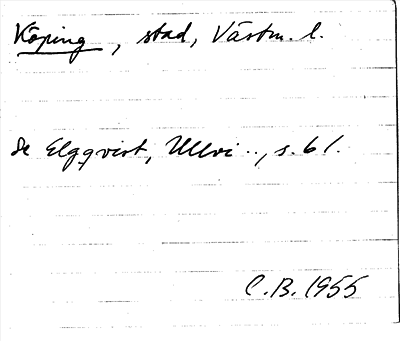 Köping, stad, Västm. l.
Se Elgqvist, Ullvi.., s. 61.
C.B. 1955